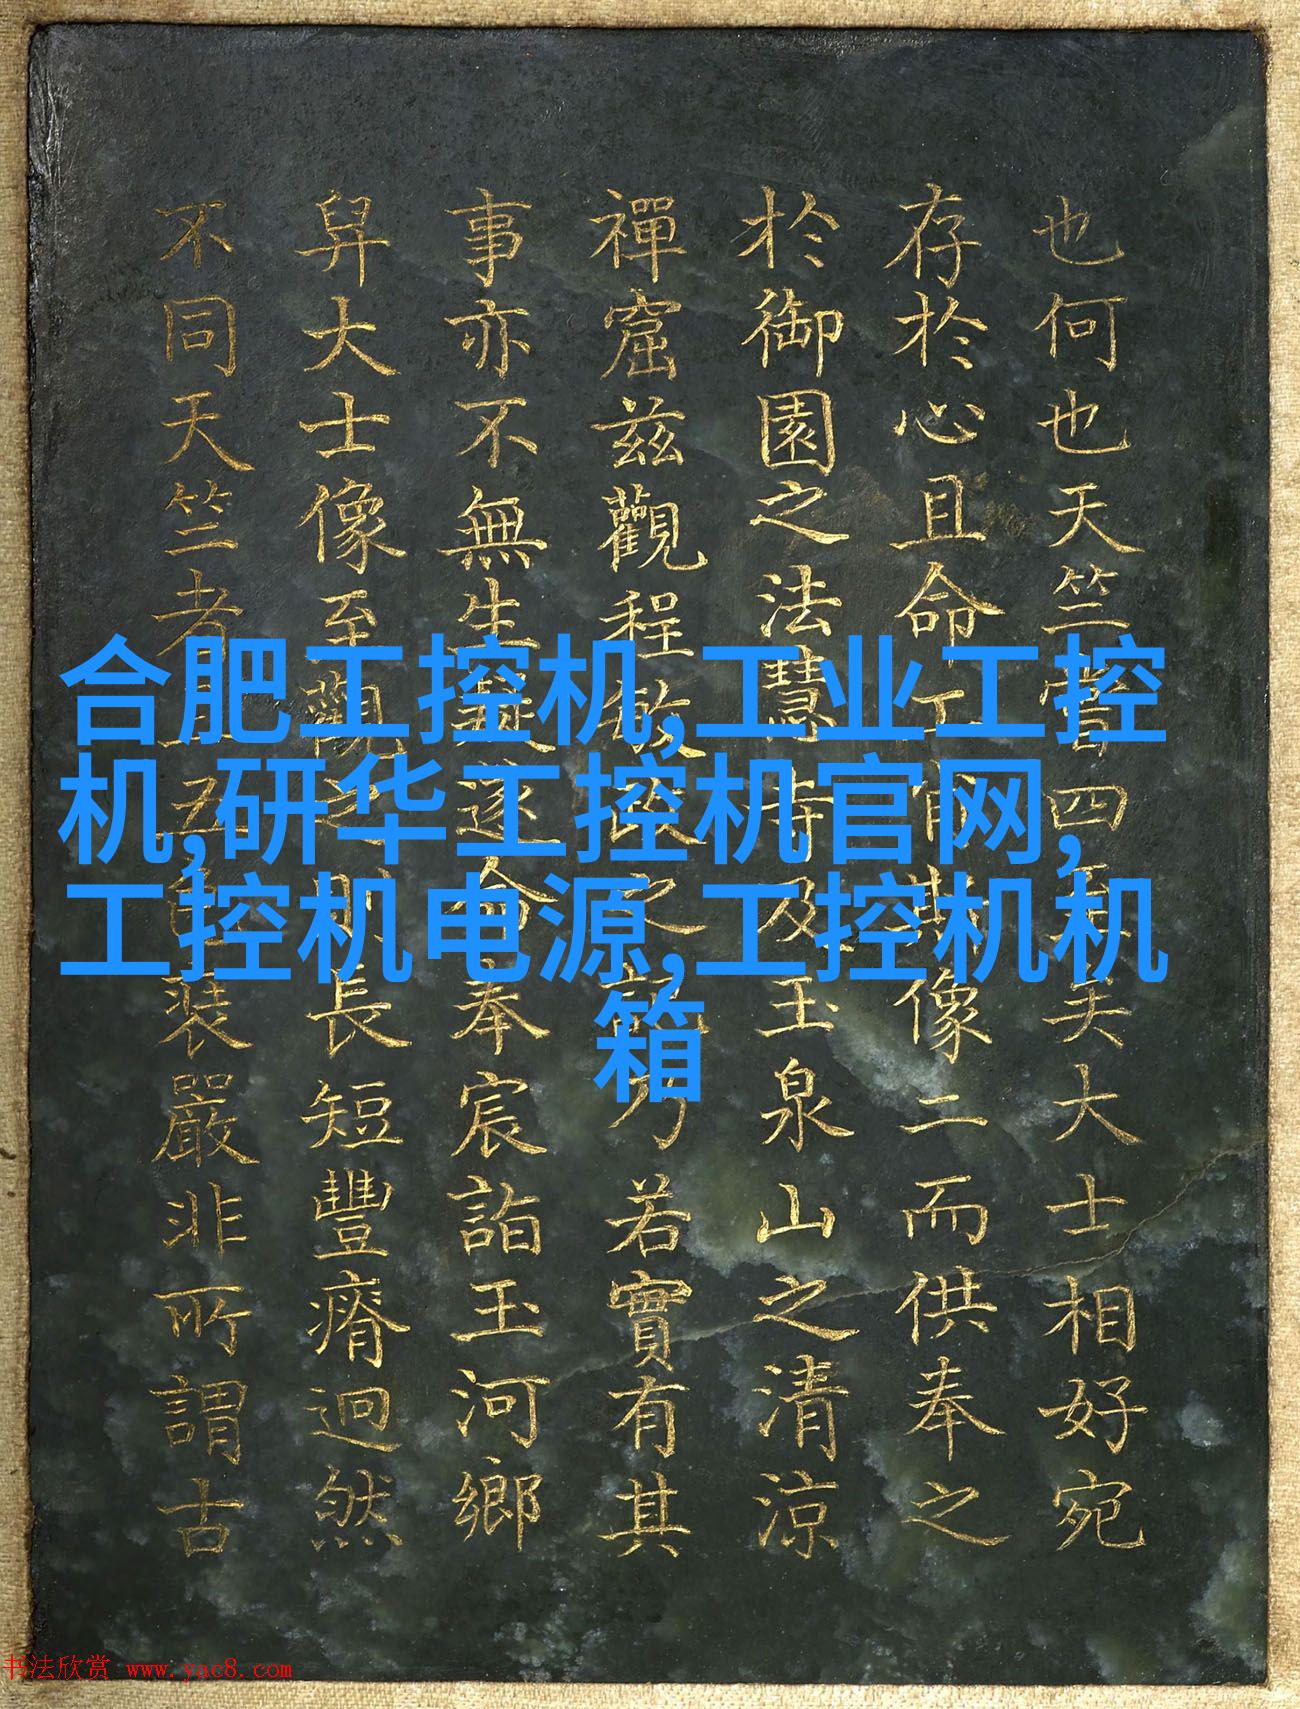 也何也天竺嘗四大士相好宛
存於心且命工像二而供奉之
於御園之法慧寺及玉泉山之清涼
禪窟兹觀程敏政之記乃若實有其
事亦不無生疑遂命奉宸詣玉河鄉
舁大士像至觀之則長短豐瘠迥然
不同天竺者且五裝嚴非所謂古
合肥工控机,工业工控
机,研华工控机官网,
工控机电源,工控机机
箱
书法欣赏 www.yac8.com